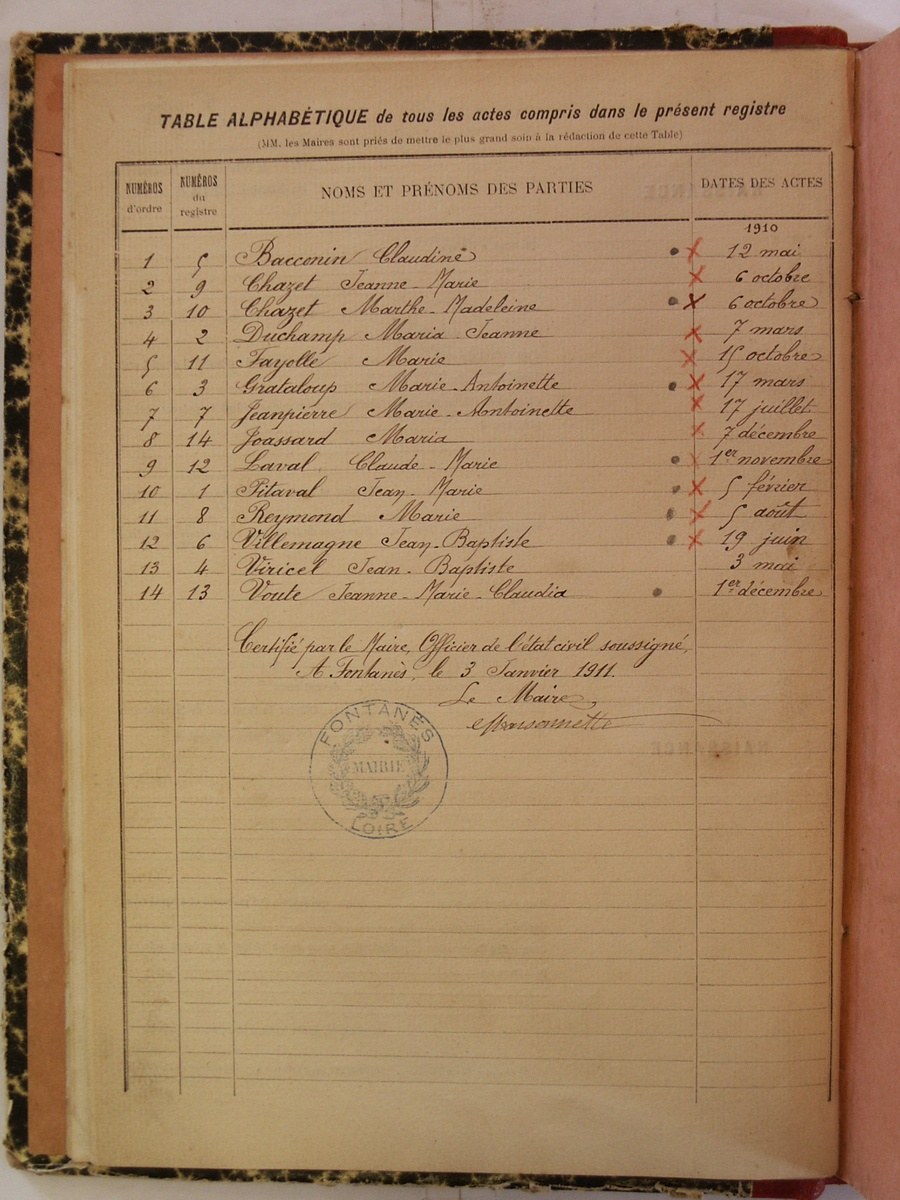 TABLE ALPHABÉTIQUE de tous les actes compris dans le présent registre
(MM. les Maires sont priés de mettre le plus grand soin à la rédaction de cette Table)
NUMÉROS d'ordre NUMÉROS du registre NOMS ET PRÉNOMS DES PARTIES DATES DES ACTES
1910
1 5 Bacconin Claudine 12 mai
2 9 Chazet Jeanne-Marie 6 octobre
3 10 Chazet Marthe-Madeleine 6 octobre
4 2 Duchamp Maria Jeanne 7 mars
5 11 Fayolle Marie 15 octobre
6 3 Grataloup Marie-Antoinette 17 mars
7 7 Jeanpierre Marie-Antoinette 17 juillet
8 14 Joassard Maria 7 décembre
9 12 Laval Claude-Marie 1er novembre
10 1 Pitaval Jean-Marie 5 février
11 8 Reymond Marie 5 août
12 6 Villemagne Jean-Baptiste 19 juin
13 4 Viricel Jean-Baptiste 3 mai
14 13 Voute Jeanne-Marie-Claudia 1er décembre
Certifié par le Maire, Officier de l'état civil soussigné,
A Fontanès, le 3 Janvier 1911.
Le Maire,
FONTANÈS
MAIRIE
LOIRE